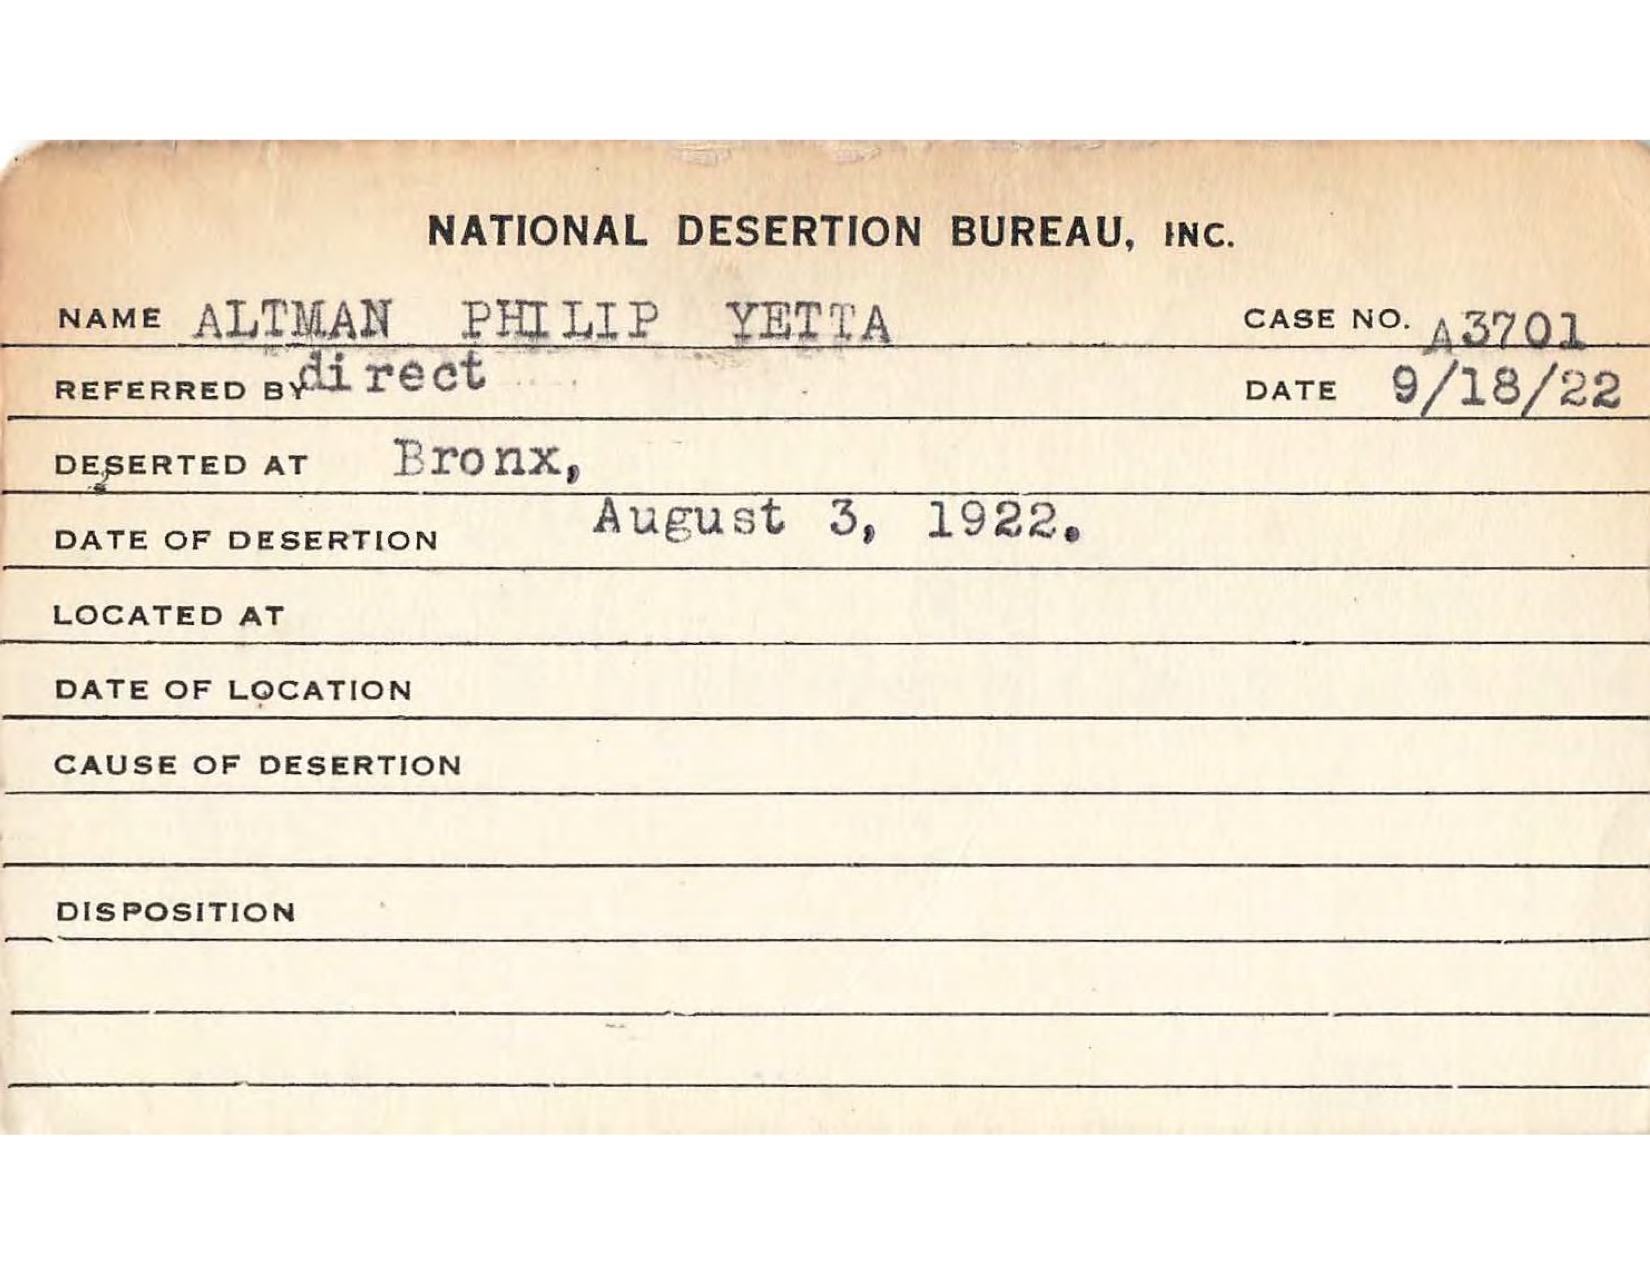 NATIONAL DESERTION BUREAU, INC.
NAME ALTMAN PHILIP YETTA CASE NO. A3701
REFERRED BY direct DATE 9/18/22
DESERTED AT Bronx,
DATE OF DESERTION August 3, 1922.
LOCATED AT
DATE OF LOCATION
CAUSE OF DESERTION
DISPOSITION